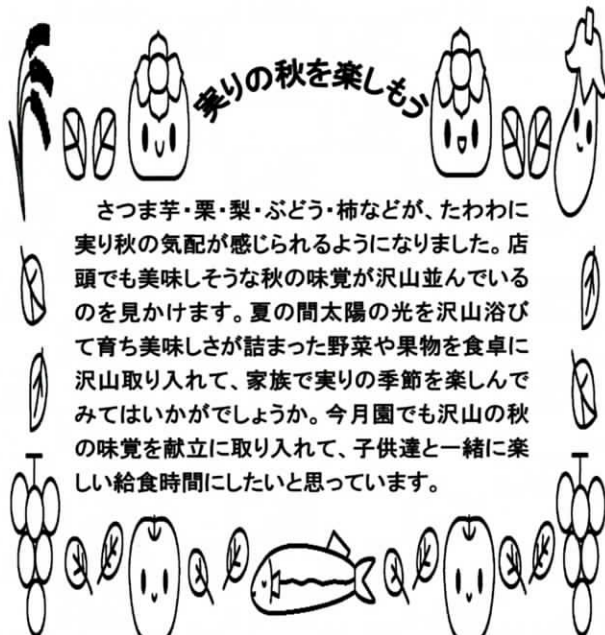 実りの秋を楽しもう
さつま芋・栗・梨・ぶどう・柿などが、たわわに
実り秋の気配が感じられるようになりました。店
頭でも美味しそうな秋の味覚が沢山並んでいる
のを見かけます。夏の間太陽の光を沢山浴び
て育ち美味しさが詰まった野菜や果物を食卓に
沢山取り入れて、家族で実りの季節を楽しんで
みてはいかがでしょうか。今月園でも沢山の秋
の味覚を献立に取り入れて、子供達と一緒に楽
しい給食時間にしたいと思っています。